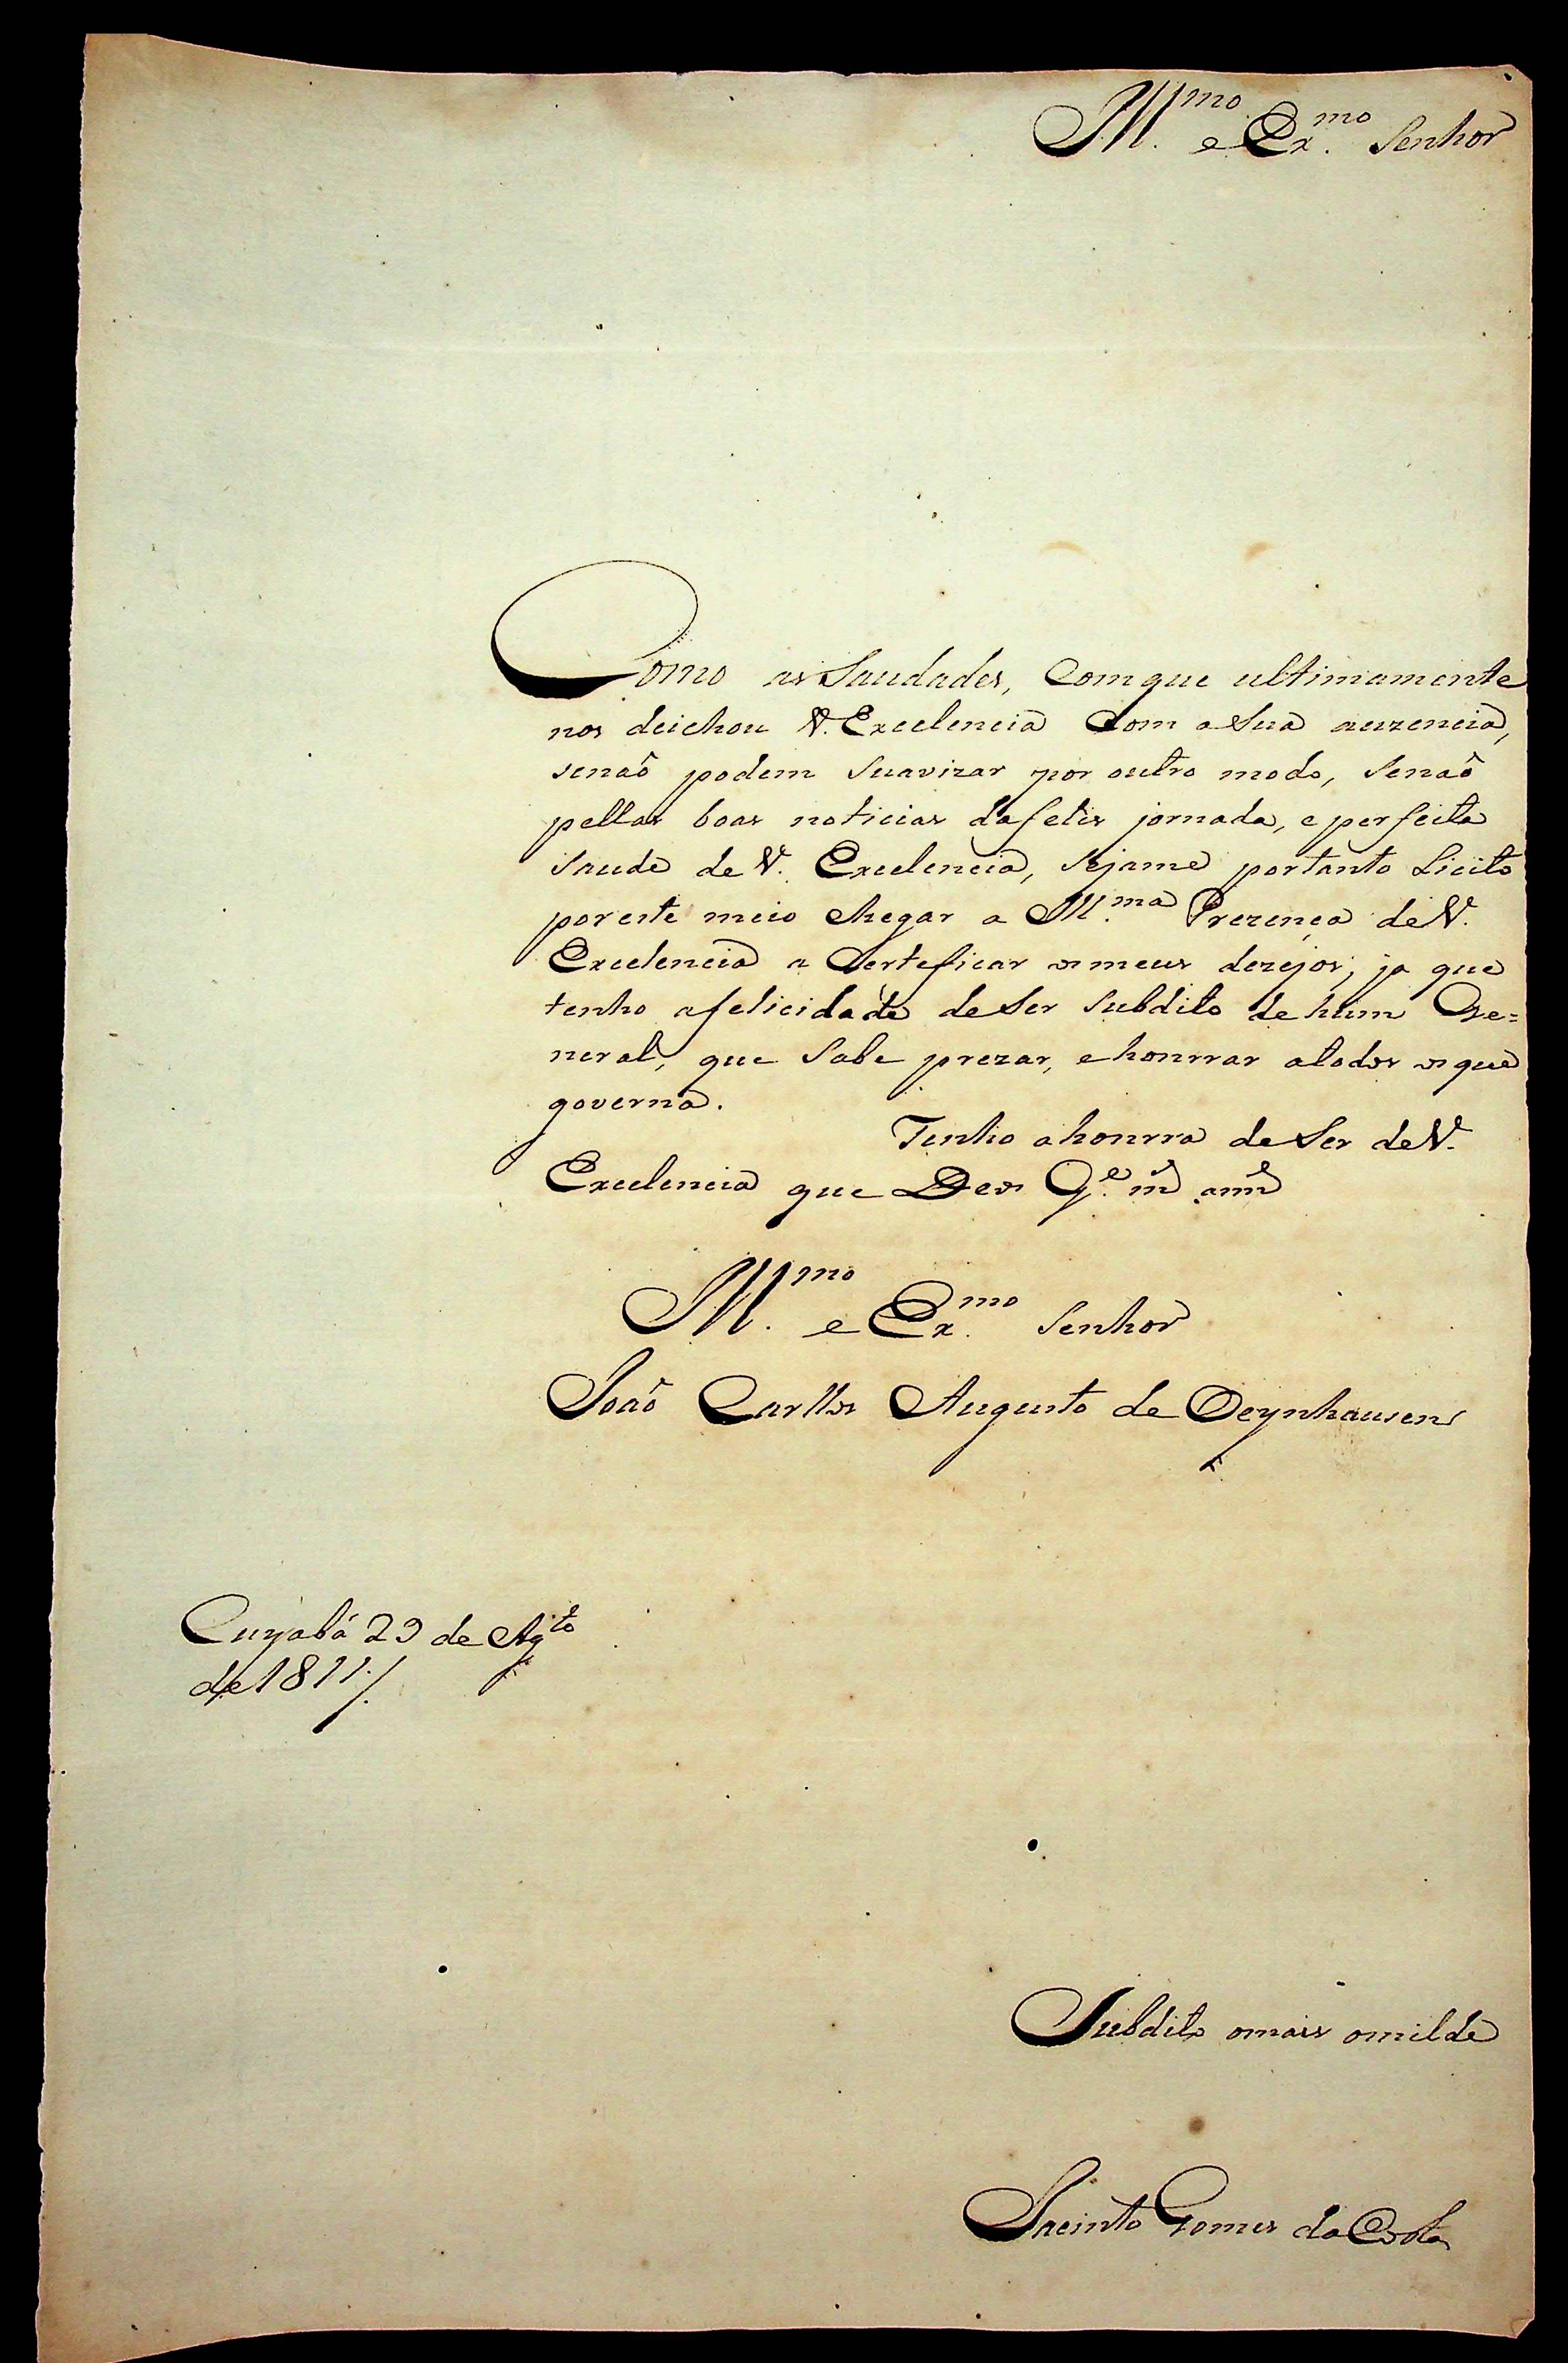 Ill.mo e Ex.mo Senhor
Como as Saudades, Com que ultimamente
nos deichou V. Excelencia Com a Sua auzencia,
senaõ podem Suavizar por outro modo, Senaõ
pellas boas noticias da felis jornada, e perfeita
Saude de V. Excelencia, Sejame portanto Licito
por este meio chegar a Ill.ma Prezença de V.
Excelencia a Certeficar os meus dezejos, ja que
tenho afelicidade de Ser Subdito de hum Ge=
neral, que Sabe prezar, e honrrar atodos os que
governa.
Tenho a honrra de Ser de V.
Excelencia que Deos G.e m.s ann.s
Ill.mo e Ex.mo Senhor
Joaõ Carllos Augusto de Oeynhausen
Cuyabá 29 de Ag.to
de 1811./.
Subdito omais omilde
Jacinto Gomes da Costa